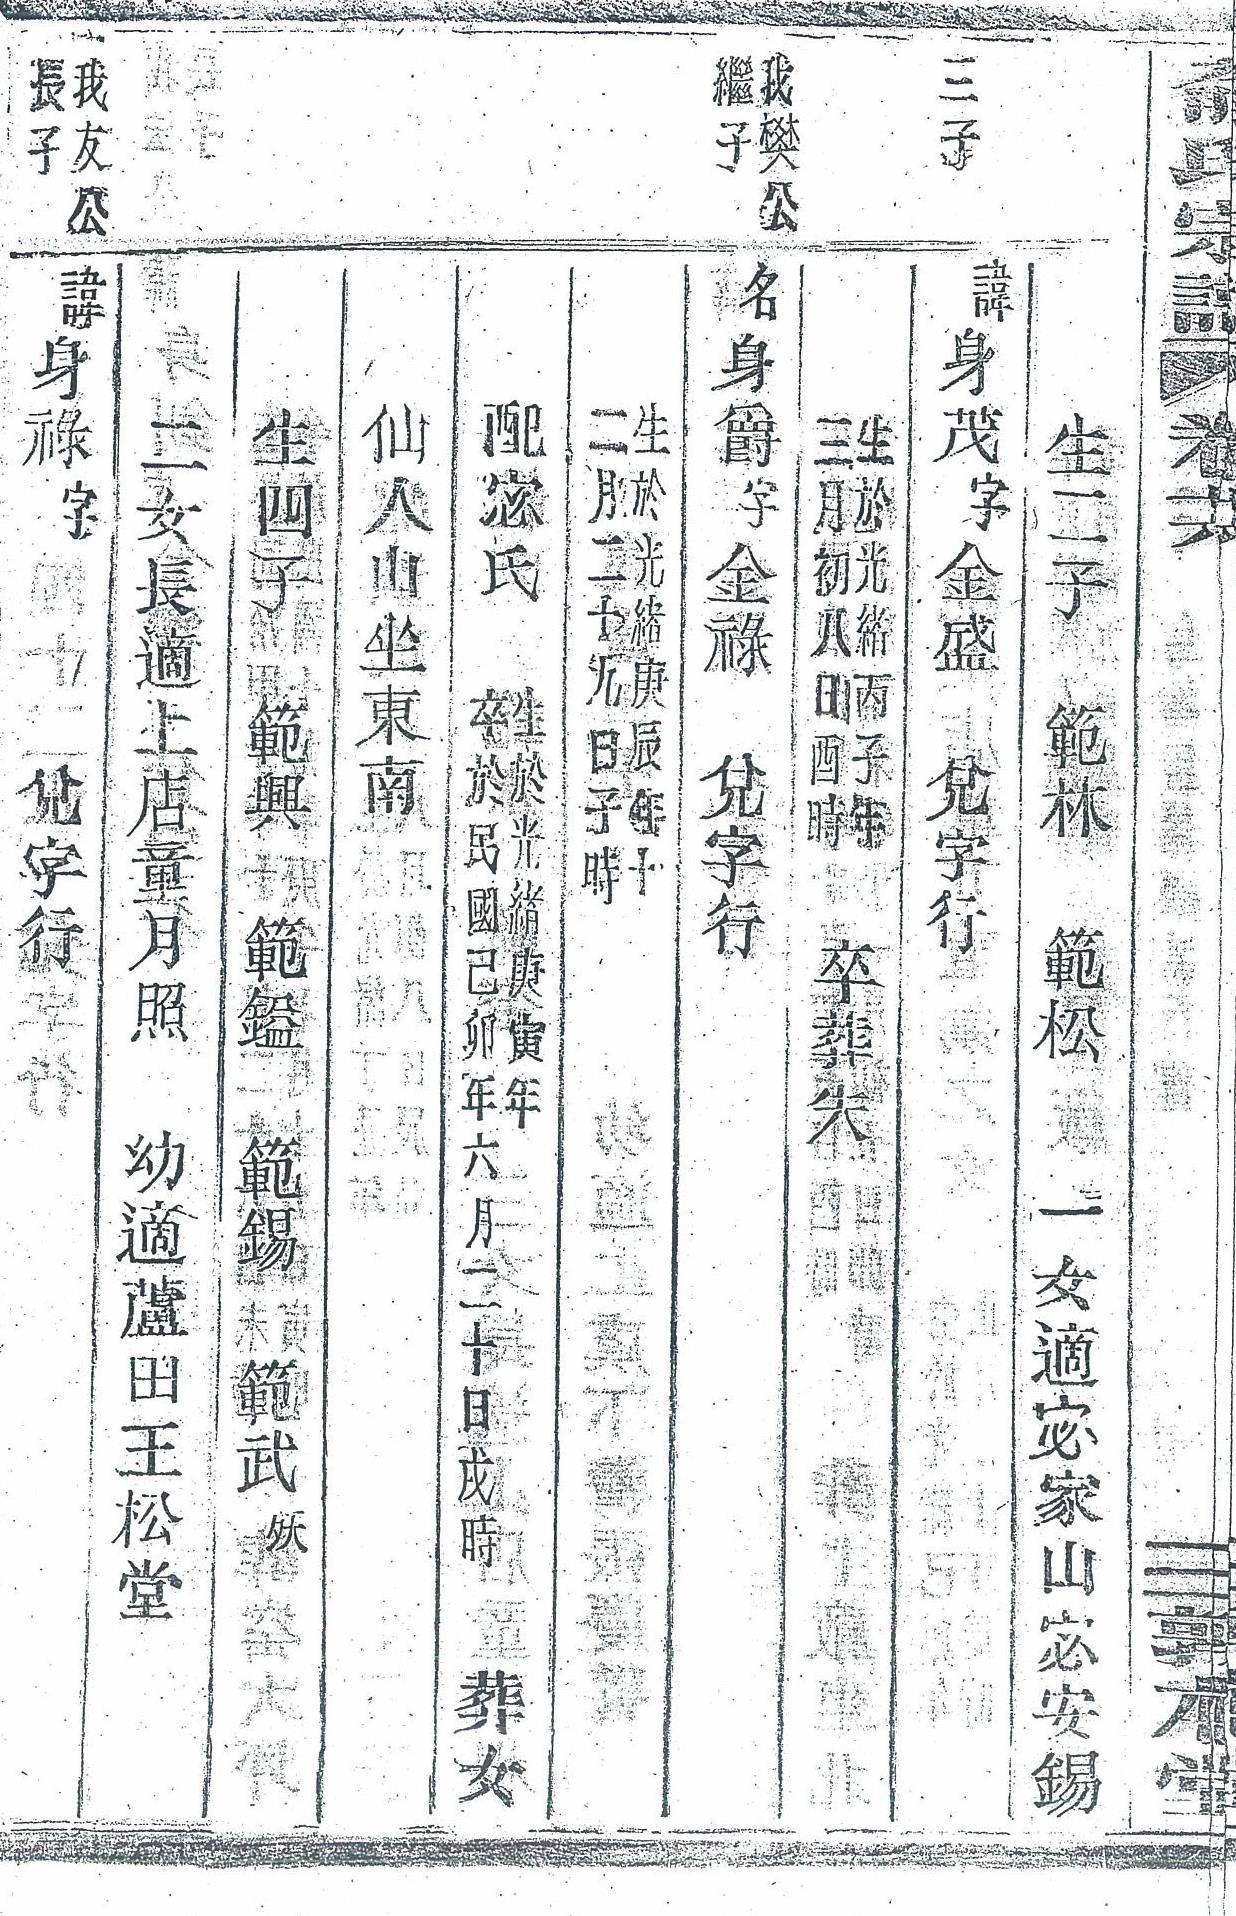 氏宗譜 卷六
生二子 範林 範松 一女適宓家山宓安錫
三子
諱身茂字金盛 兌字行
生於光緒丙子年
三月初八日酉時
卒葬失
我樊公
繼子
名身爵字金祿 兌字行
生於光緒庚辰年十
二月二十九日子時
配宓氏
生於光緒庚寅年
卒於民國己卯年六月二十日戌時
葬女
仙人山坐東南
生四子 範興 範鎰 範錫 範武 殀
二女長適上店童月照 幼適蘆田王松堂
我友公
長子
諱身祿字 兌字行